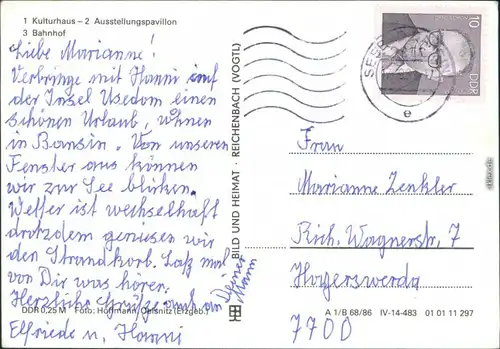 1 Kulturhaus – 2 Ausstellungspavillon
3 Bahnhof
Liebe Marianne!
Verbringe mit Hanni auf
der Insel Usedom einen
schönen Urlaub, wohnen
in Bansin. Von unseren
Fenster aus können
wir zur See blicken.
Wetter ist wechselhaft
drotzdem geniesen wir
den Strandkorb. Laß mal
von Dir was hören.
Herzliche Grüße auch an Deinen
Mann
Elfriede u. Hanni
DDR 0,25 M Foto: Hoffmann, Oelsnitz (Erzgeb.)
BILD UND HEIMAT · REICHENBACH (VOGTL)
10
DDR
SEEB
e
Frau
Marianne Zenkler
Rich. Wagnerstr. 7
Hoyerswerda
7700
A 1/B 68/86 IV-14-483 01 01 11 297